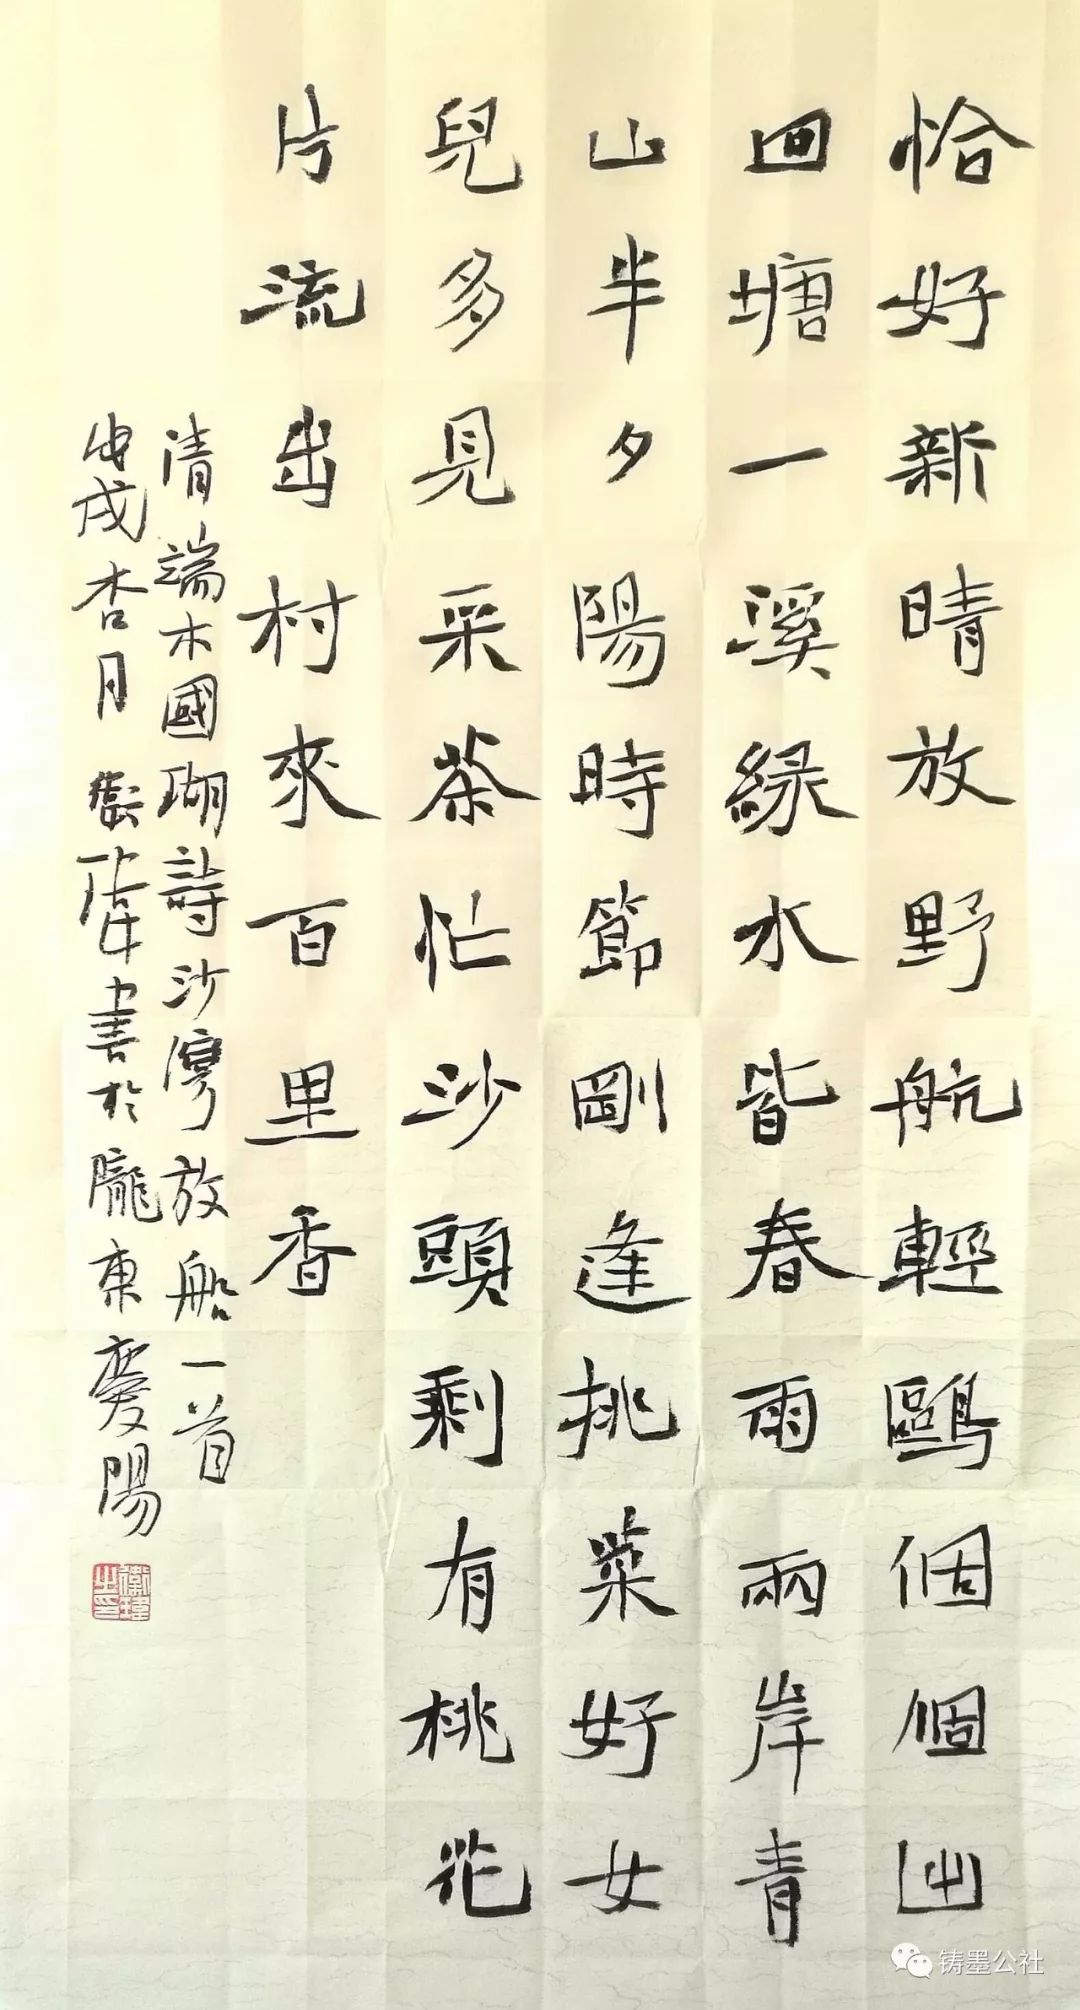 恰好新晴放野航輕鷗個個出
回塘一溪緑水皆春雨兩岸青
山半夕陽時節剛逢挑菜好女
兒多見采茶忙沙頭剩有桃花
片流出村來百里香
清端木國瑚詩沙灣放船一首
戊戌杏月衛瑋書於隴東慶陽
衛瑋之印
铸墨公社